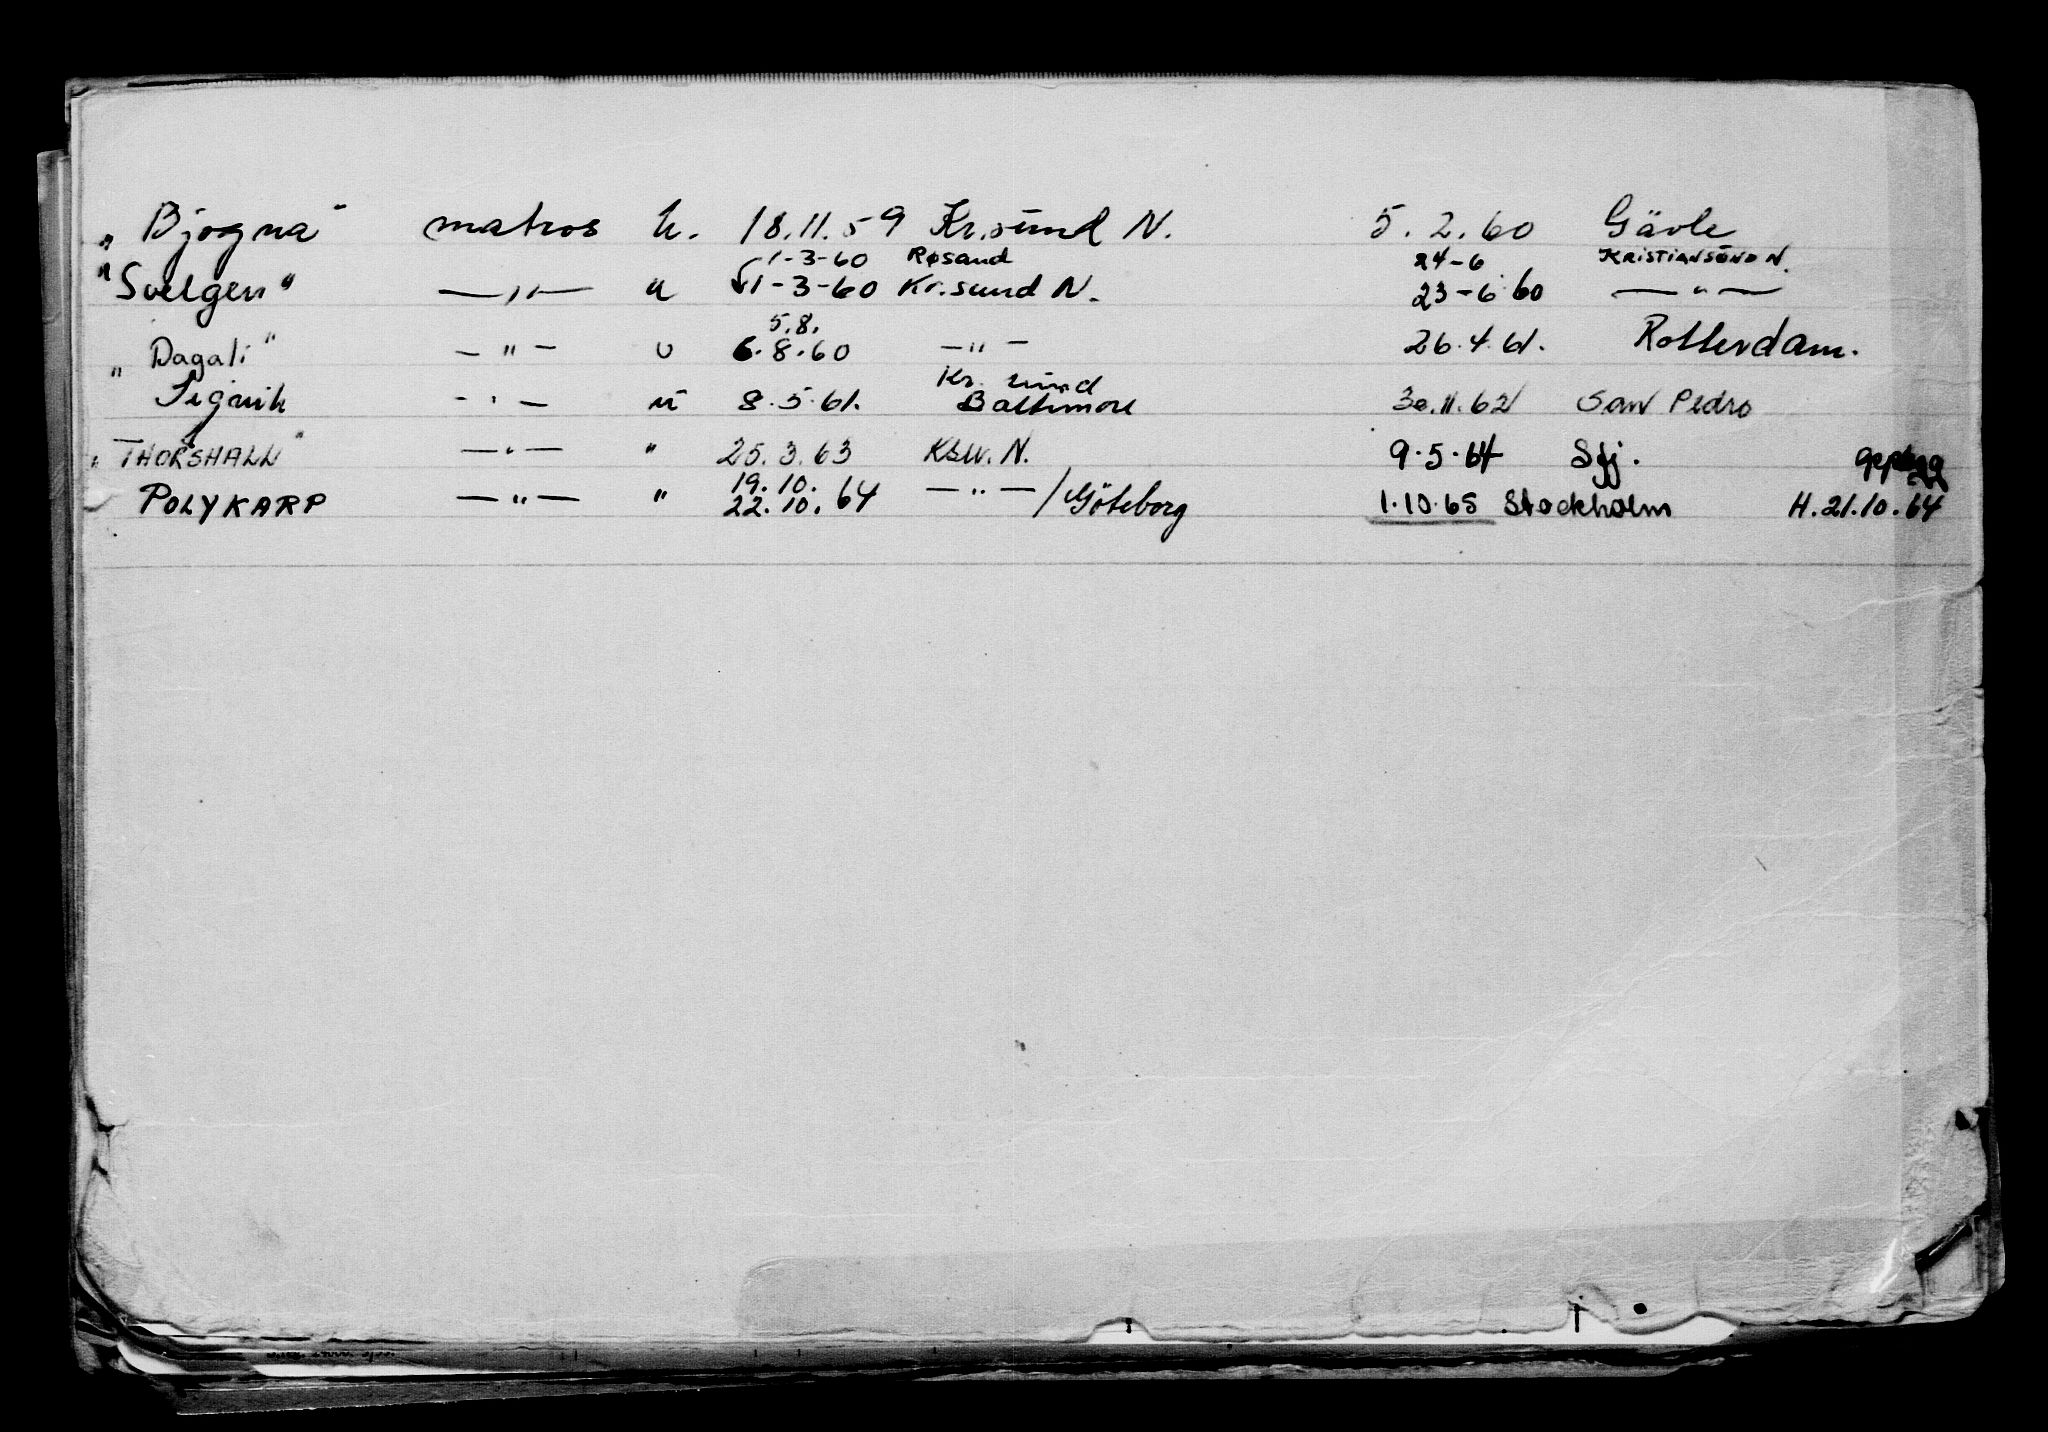 „ Bjogna" matros u. 18.11.59 Kr.sund N. 5.2.60 Gävle
1-3-60 Røsand 24-6 KRISTIANSUND N.
"Svelgen" —„— u 1-3-60 Kr.sund N. 23-6-60 —"—
5.8.
„ Dagali" —"— u 6.8.60 —"— 26.4.61. Rotterdam.
Kr. sund
Signik —"— u 8.5.61. Baltimore 30.11.62 San Pedro
„ THORSHALL" —"— " 25.3.63 KSU. N. 9.5.64 Sfj.
19.10.
POLYKARP —"— " 22.10.64 —"—/Göteborg 1.10.65 Stockholm H.21.10.64